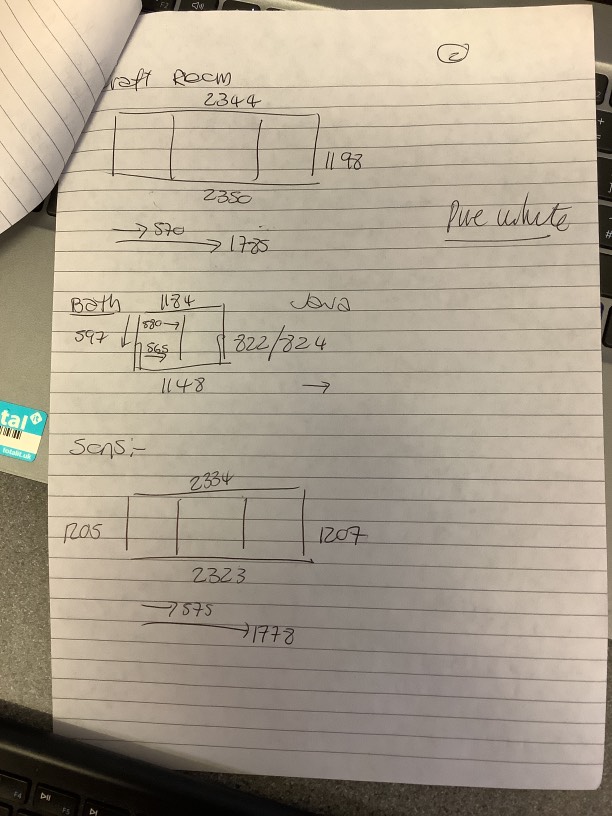 ②
raft Room
2344
1198
2350
Pure white
570
1785
Bath
1184
Java
597
580
565
822/824
1148
Sons:-
2334
1205
1207
2323
575
1778
tal it
totalit.uk
F4
F5